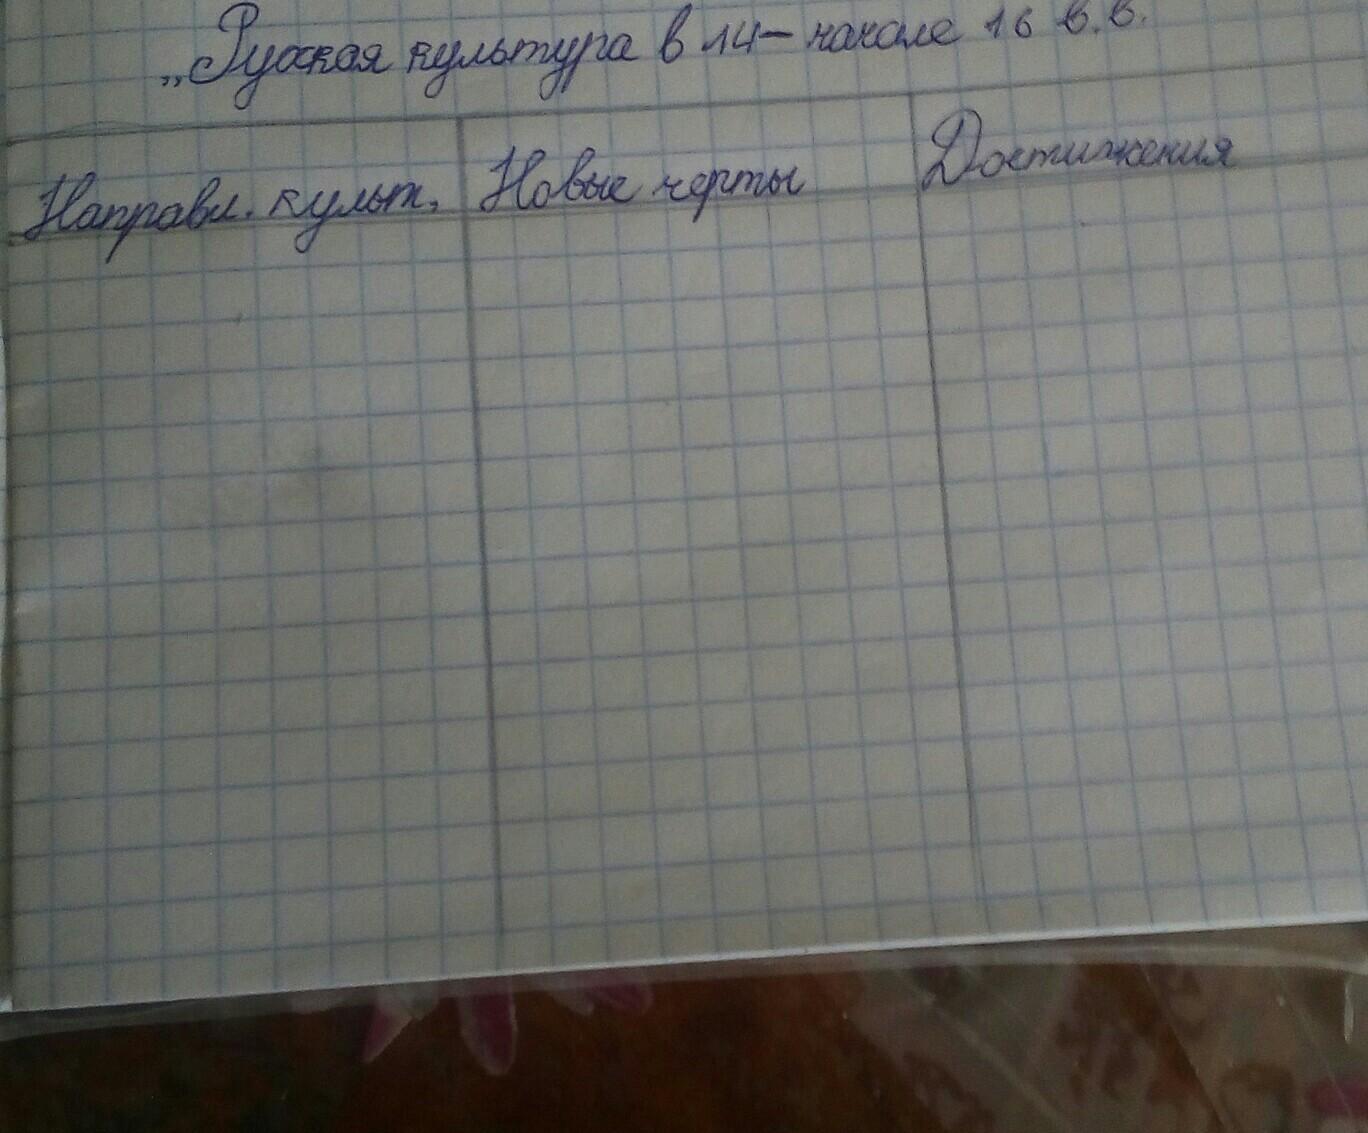 „Русская культура в 14- начале 16 в.в.
Направл. культ.
Новые черты
Достижения